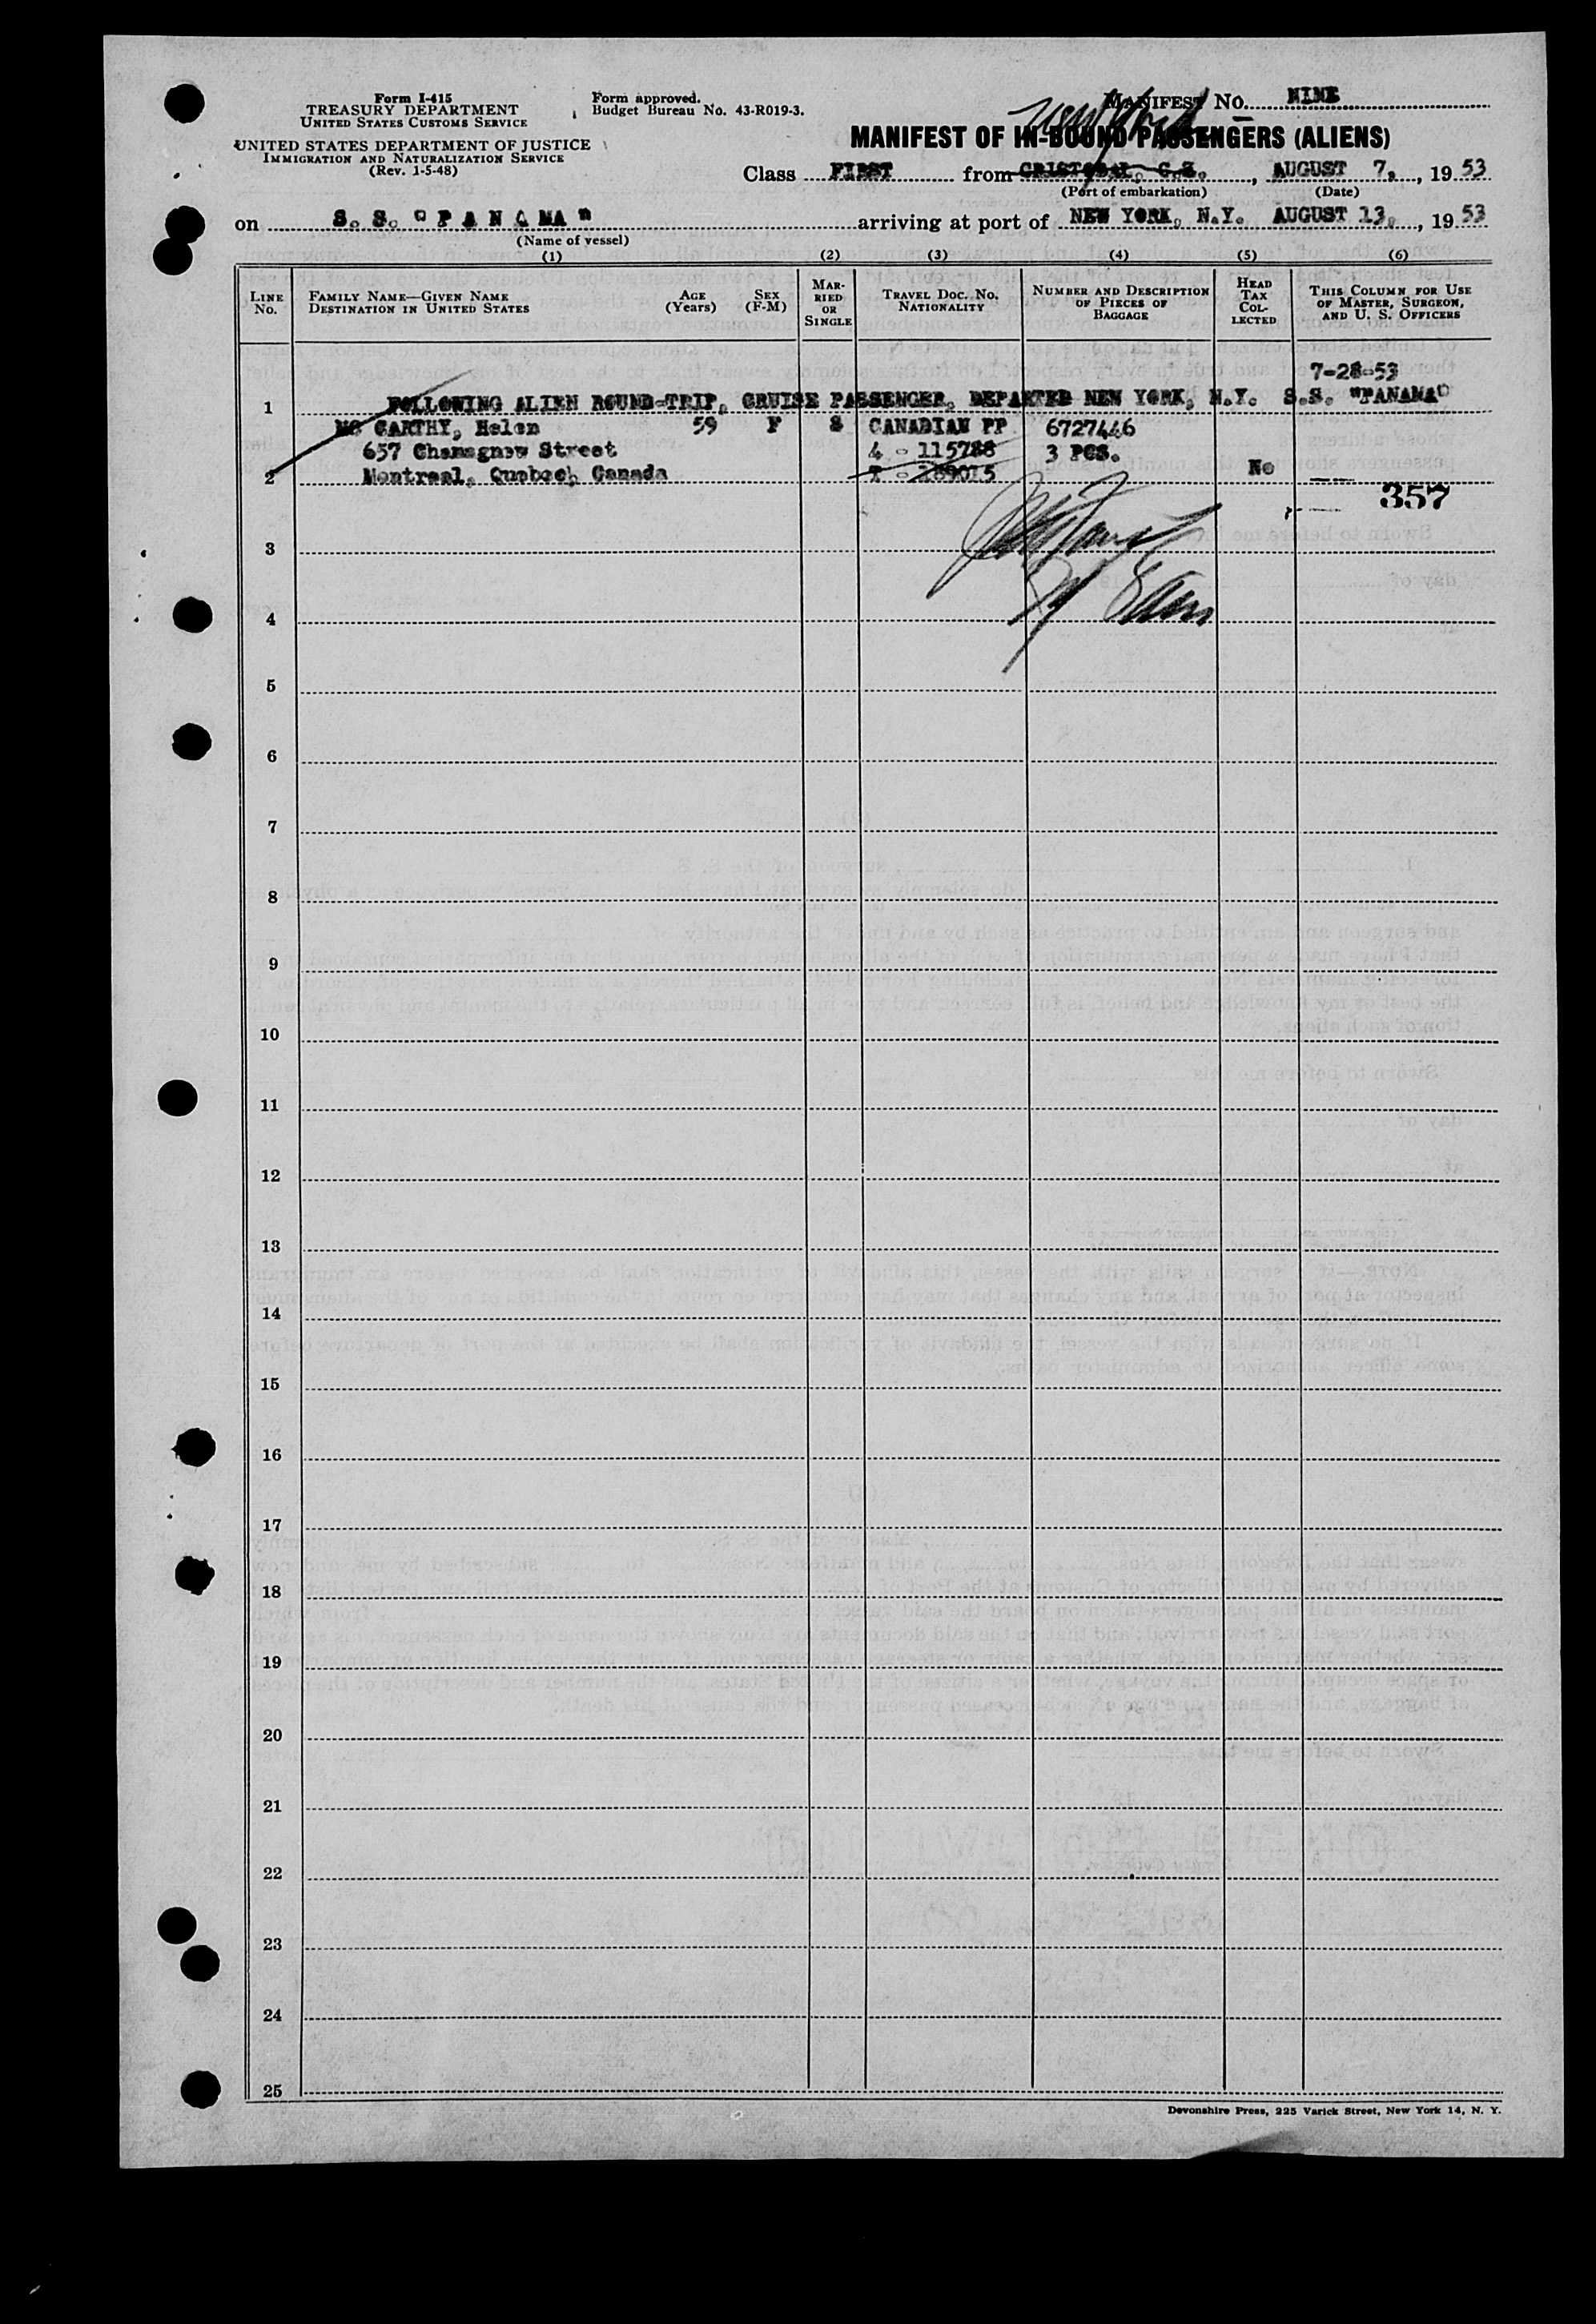 Form I-415
TREASURY DEPARTMENT
UNITED STATES CUSTOMS SERVICE
UNITED STATES DEPARTMENT OF JUSTICE
IMMIGRATION AND NATURALIZATION SERVICE
(Rev. 1-5-48)
Form approved.
Budget Bureau No. 43-R019-3.
MANIFEST NO. NINE
New York
MANIFEST OF IN-BOUND PASSENGERS (ALIENS)
Class FIRST from CRISTOBAL, C.Z., AUGUST 7, 1953
(Port of embarkation) (Date)
on S. S. "P A N A M A" arriving at port of NEW YORK, N.Y. AUGUST 13, 1953
(Name of vessel)
(1) (2) (3) (4) (5) (6)
LINE NO.
FAMILY NAME—GIVEN NAME
DESTINATION IN UNITED STATES
AGE (Years)
SEX (F-M)
MARRIED OR SINGLE
TRAVEL DOC. NO. NATIONALITY
NUMBER AND DESCRIPTION OF PIECES OF BAGGAGE
HEAD TAX COLLECTED
THIS COLUMN FOR USE OF MASTER, SURGEON, AND U. S. OFFICERS
7-28-53
1 FOLLOWING ALIEN ROUND-TRIP, CRUISE PASSENGER, DEPARTED NEW YORK, N.Y. S.S. "PANAMA"
MC CARTHY, Helen 59 F S CANADIAN PP 6727446
657 Street 4 - 115788 3 PCS.
2 Montreal, Quebec, Canada No
357
3
4
5
6
7
8
9
10
11
12
13
14
15
16
17
18
19
20
21
22
23
24
25
Devonshire Press, 225 Varick Street, New York 14, N. Y.